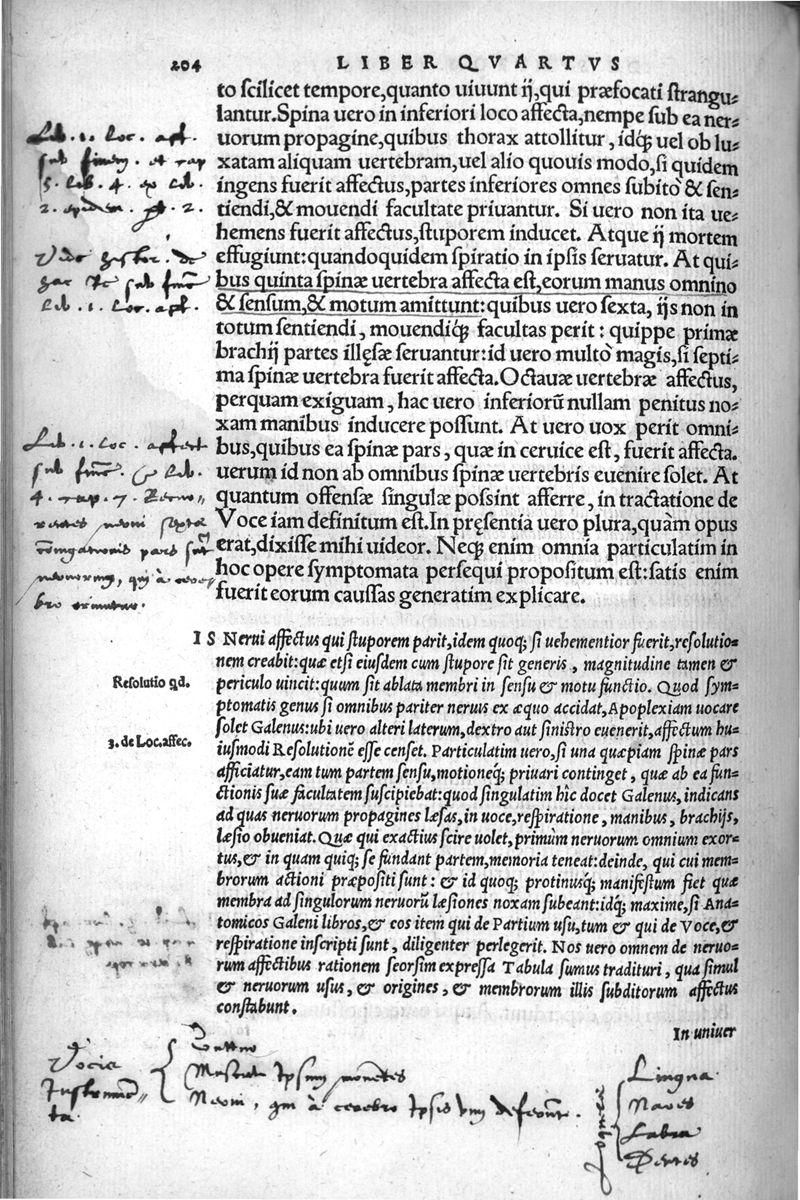 204 LIBER QVARTVS
to scilicet tempore,quanto uiuunt ij,qui præfocati strangu-
lantur.Spina uero in inferiori loco affecta,nempe sub ea ner-
uorum propagine,quibus thorax attollitur, idq; uel ob lu-
xatam aliquam uertebram,uel alio quouis modo,si quidem
ingens fuerit affectus,partes inferiores omnes subitò & sen-
tiendi,& mouendi facultate priuantur. Si uero non ita ue-
hemens fuerit affectus,stuporem inducet. Atque ij mortem
effugiunt:quandoquidem spiratio in ipsis seruatur. At qui-
bus quinta spinæ uertebra affecta est,eorum manus omnino
& sensum,& motum amittunt:quibus uero sexta, ijs non in
totum sentiendi, mouendiq; facultas perit : quippe primæ
brachij partes illęsæ seruantur:id uero multò magis,si septi-
ma spinæ uertebra fuerit affecta.Octauæ uertebræ affectus,
perquam exiguam, hac uero inferiorũ nullam penitus no-
xam manibus inducere possunt. At uero uox perit omni-
bus,quibus ea spinæ pars, quæ in ceruice est, fuerit affecta.
uerum id non ab omnibus spinæ uertebris euenire solet. At
quantum offensæ singulæ possint afferre, in tractatione de
Voce iam definitum est.In pręsentia uero plura,quàm opus
erat,dixisse mihi uideor. Neq; enim omnia particulatim in
hoc opere symptomata persequi propositum est:satis enim
fuerit eorum caussas generatim explicare.
Lib. 1. loc. aff.
sub finem. et cap
5. lib. 4. ex lib.
2. epidem. 2.
Vide histor. de
hac re sub fine
lib. 1. loc. aff.
Lib. 1. loc. affect
sub fine. & lib.
4. cap. 7.
bro oriuntur.
IS Nerui affectus qui stuporem parit,idem quoq; si uehementior fuerit,resolutio-
nem creabit:quæ etsi eiusdem cum stupore sit generis, magnitudine tamen &
periculo uincit:quum sit ablata membri in sensu & motu functio. Quod sym-
ptomatis genus si omnibus pariter neruis ex æquo accidat,Apoplexiam uocare
solet Galenus:ubi uero alteri laterum,dextro aut sinistro euenerit,affectum hu-
iusmodi Resolutionẽ esse censet. Particulatim uero,si una quæpiam spinæ pars
afficiatur,eam tum partem sensu,motioneq; priuari continget, quæ ab ea fun-
ctionis suæ facultatem suscipiebat:quod singulatim hîc docet Galenus,indicans
ad quas neruorum propagines læsas,in uoce,respiratione, manibus, brachijs,
læsio obueniat.Quæ qui exactius scire uolet, primùm neruorum omnium exor-
tus,& in quam quiq; se fundant partem,memoria teneat:deinde, qui cui mem-
brorum actioni præpositi sunt : & id quoq; protinusq; manifestum fiet quæ
membra ad singulorum neruorũ læsiones noxam subeant:idq; maxime,si Ana-
tomicos Galeni libros,& eos item qui de Partium usu,tum & qui de Voce,&
respiratione inscripti sunt, diligenter perlegerit. Nos uero omnem de neruo-
rum affectibus rationem seorsim expressa Tabula sumus tradituri, qua simul
& neruorum usus, & origines, & membrorum illis subditorum affectus
constabunt.
Resolutio qd.
3. de Loc.affec.
In uniuer
Vocis
Instrumẽ-
ta.
Guttur
Musculi Ipsum mouentes
Nerui, qui à cerebro Ipsis vim deferunt.
Lingua
Nares
Labra
Dentes